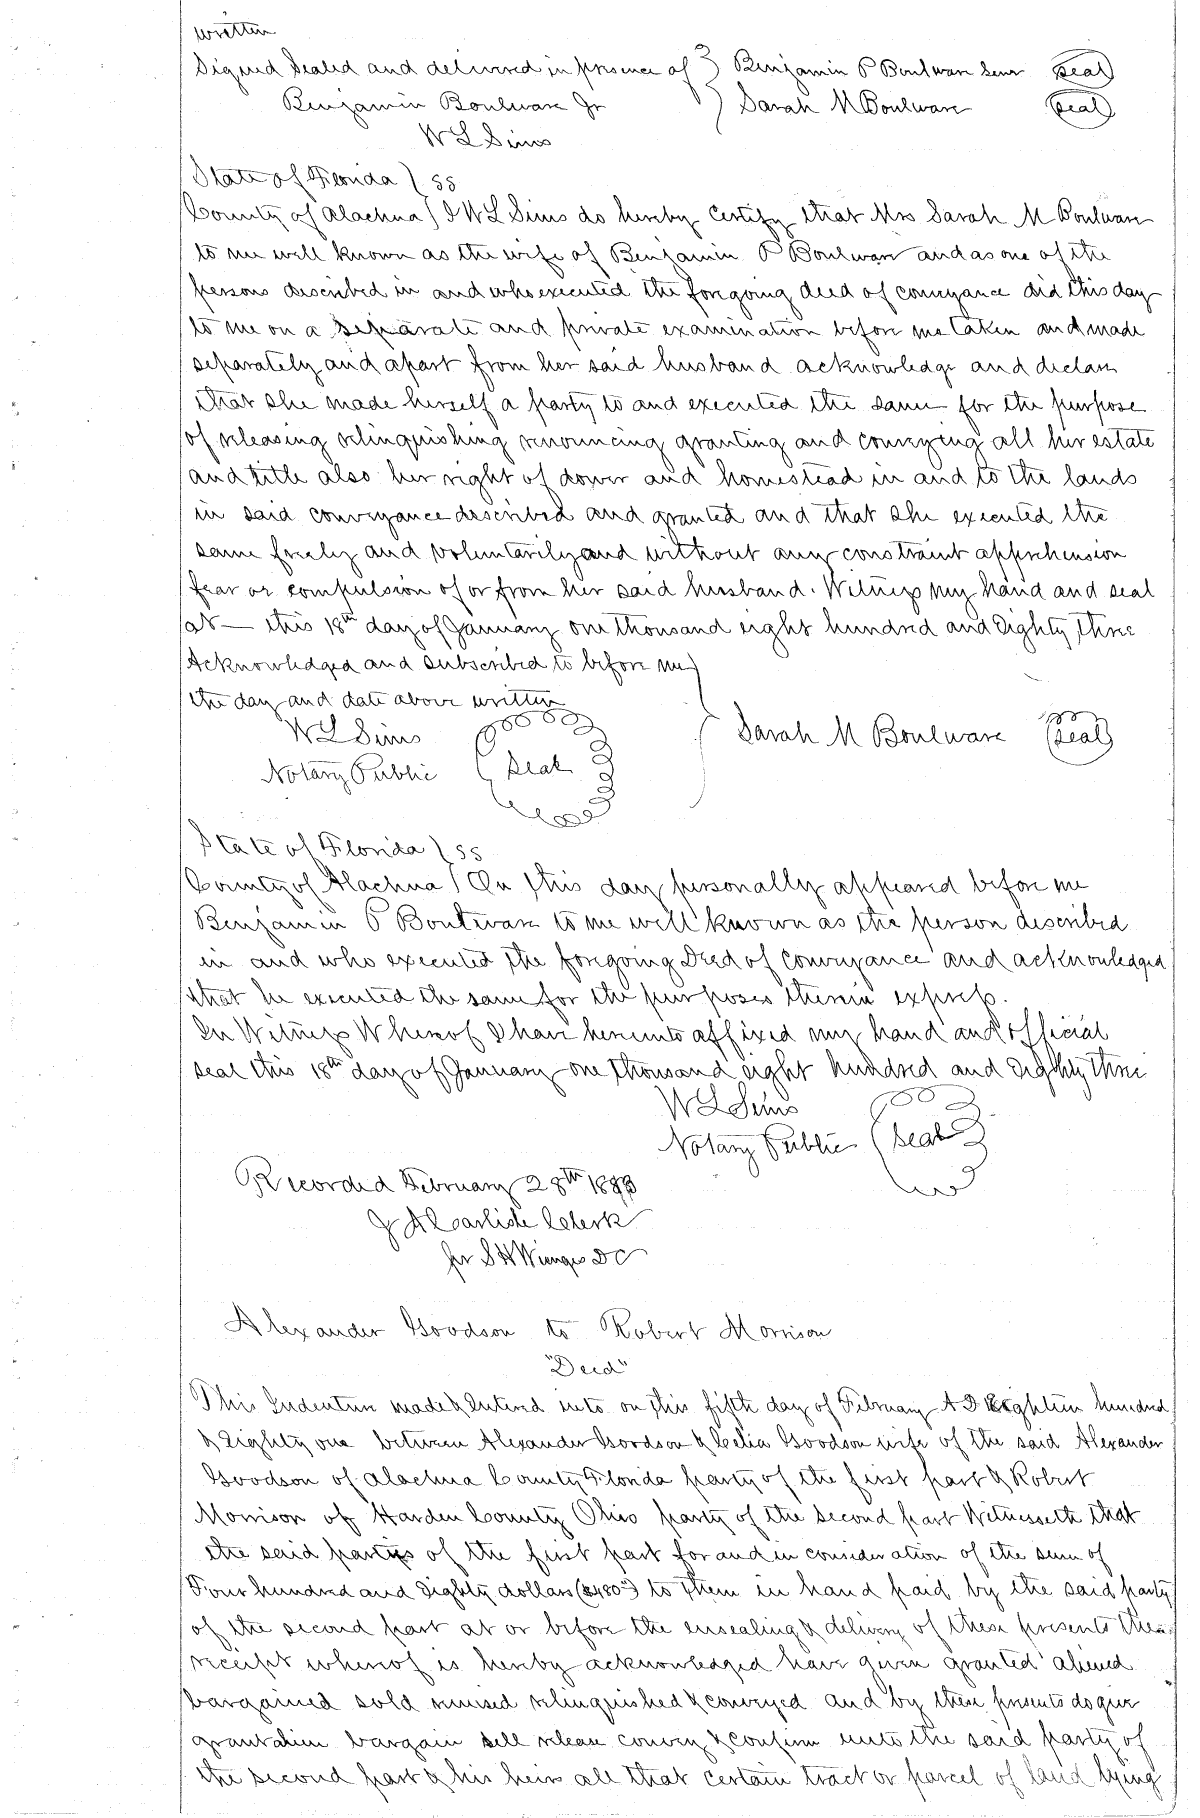 written
Signed Sealed and delivered in presence of } Benjamin P Boulware Senr (seal)
Benjamin Boulware Jr } Sarah M Boulware (seal)
W L Sims
State of Florida } ss
County of Alachua } I W L Sims do hereby certify that Mrs Sarah M Boulware
to me well known as the wife of Benjamin P Boulware and as one of the
persons described in and who executed the foregoing deed of conveyance did this day
to me on a separate and private examination before me taken and made
separately and apart from her said husband acknowledge and declare
that she made herself a party to and executed the same for the purpose
of releasing relinquishing renouncing granting and conveying all her estate
and title also her right of dower and homestead in and to the lands
in said conveyance described and granted and that she executed the
same freely and voluntarily and without any constraint apprehension
fear or compulsion of or from her said husband. Witness my hand and seal
at — this 18th day of January one thousand eight hundred and Eighty three
Acknowledged and subscribed to before me }
the day and date above written
W L Sims } Sarah M Boulware (seal)
Notary Public (seal)
State of Florida } ss
County of Alachua } On this day personally appeared before me
Benjamin P Boulware to me well known as the person described
in and who executed the foregoing Deed of conveyance and acknowledged
that he executed the same for the purposes therein express.
In Witness Whereof I have hereunto affixed my hand and official
seal this 18th day of January one thousand eight hundred and Eighty three
W L Sims
Notary Public (seal)
Recorded February 28th 1883
J A Carlisle Clerk
per S H Wienges DC
Alexander Goodson to Robert Morrison
"Deed"
This Indenture made & Entered into on this fifth day of February A D Eighteen hundred
& Eighty one between Alexander Goodson & Celia Goodson wife of the said Alexander
Goodson of Alachua County Florida party of the first part & Robert
Morrison of Harden County Ohio party of the second part Witnesseth that
the said parties of the first part for and in consideration of the sum of
Four hundred and Eighty dollars ($480⁰⁰) to them in hand paid by the said party
of the second part at or before the ensealing & delivery of these presents the
receipt whereof is hereby acknowledged have given granted aliened
bargained sold remised relinquished & conveyed and by these presents do give
grant alien bargain sell release convey & confirm unto the said party of
the second part & his heirs all that certain tract or parcel of land lying